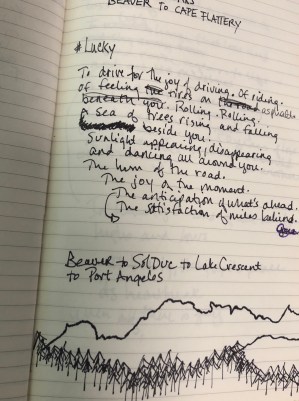 BEAVER TO CAPE FLATTERY
#Lucky
To drive for the joy of driving. Of riding.
of feeling the tires on the road asphalt
beneath your. Rolling. Rolling.
A sea of trees rising and falling
beside you.
Sunlight appearing, disappearing
and dancing all around you.
The hum of the road.
The joy of the moment.
The anticipation of what's ahead.
The satisfaction of miles behind.
Beaver to Sol Duc to Lake Crescent
to Port Angeles